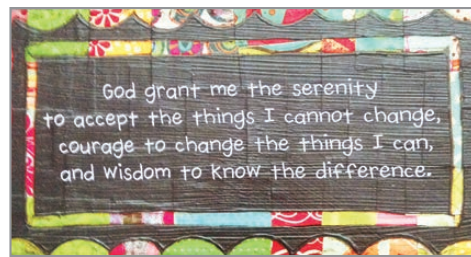 God grant me the serenity
to accept the things I cannot change,
courage to change the things I can,
and wisdom to know the difference.